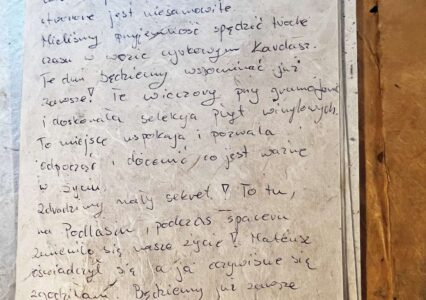 stworzone jest niesamowite.
Mieliśmy przyjemność spędzić trochę
czasu w wozie cyrkowym Kardasz.
Te dni będziemy wspominać już
zawsze! Te wieczory przy gramofonie
i doskonała selekcja płyt winylowych.
To miejsce uspokaja i pozwala
odpocząć i docenić, co jest ważne
w życiu.
Zdradzimy mały sekret! To tu,
na Podlasiu, podczas spaceru
zmieniło się nasze życie! Mateusz
oświadczył się a ja oczywiście się
zgodziłam. Będziemy już zawsze